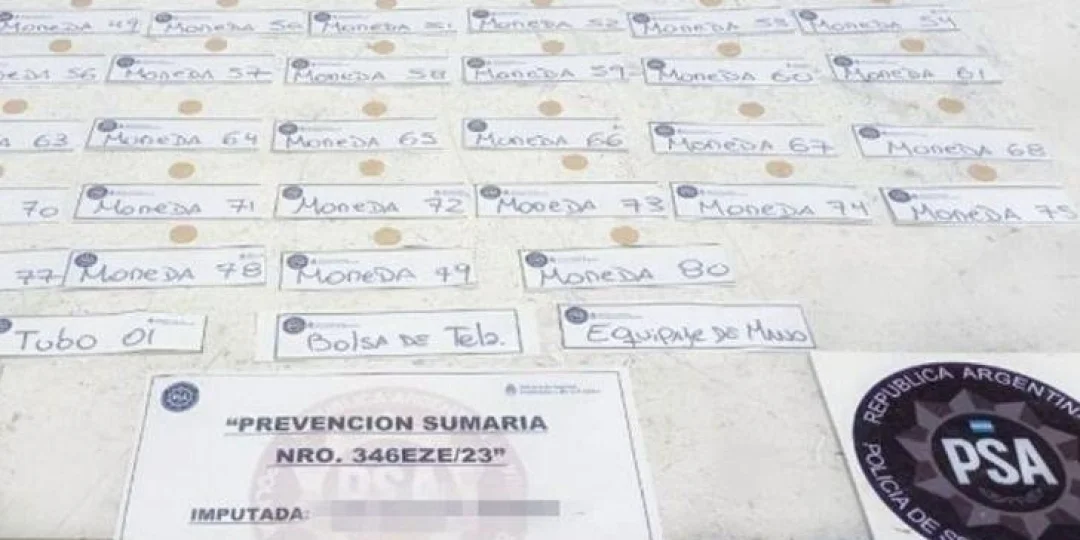 Moneda 49
Moneda 50
Moneda 51
Moneda 52
Moneda 53
Moneda 54
neda 56
Moneda 57
Moneda 58
Moneda 59
Moneda 60
Moneda 61
a 63
Moneda 64
Moneda 65
Moneda 66
Moneda 67
Moneda 68
70
Moneda 71
Moneda 72
Moneda 73
Moneda 74
Moneda 75
77
Moneda 78
Moneda 79
Moneda 80
Tubo 01
Bolsa de Tela.
Equipaje de Mano
"PREVENCION SUMARIA
NRO. 346EZE/23"
IMPUTADA:
REPUBLICA ARGENTINA
PSA
POLICIA DE SE